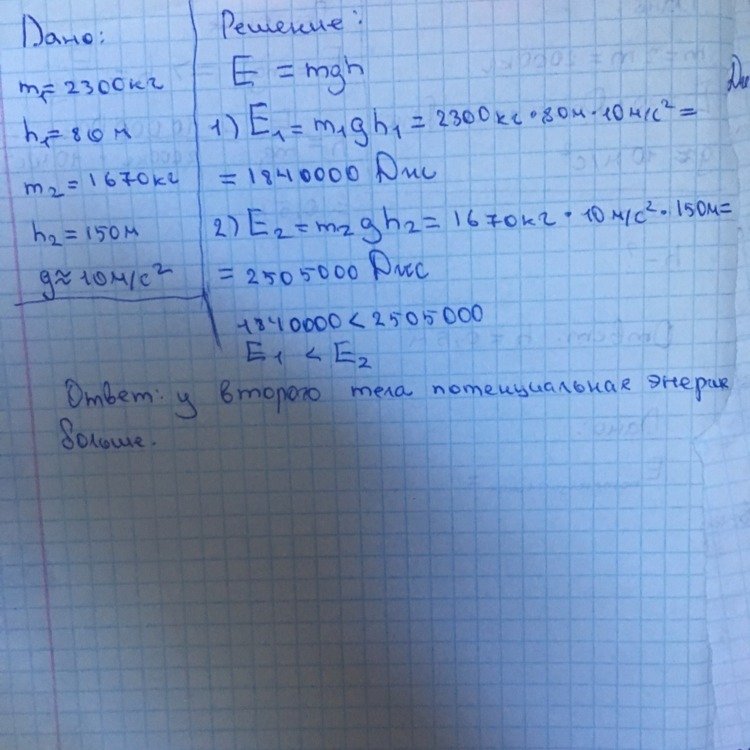 Дано:
m₁=2300кг
h₁=80м
m₂=1670кг
h₂=150м
g≈10м/с²
Решение:
E = mgh
1) E₁=m₁gh₁=2300кг·80м·10м/с²=
=1840000 Дж
2) E₂=m₂gh₂=1670кг·10м/с²·150м=
=2505000 Дж
1840000<2505000
E₁ < E₂
Ответ: у второго тела потенциальная энергия
больше.